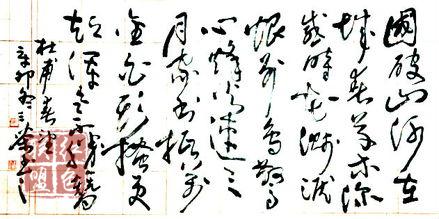 國破山河在
城春草木深
感時花濺淚
恨別鳥驚
心烽火連三
月家書抵萬
金白頭搔更
短渾欲不勝簪
杜甫春望
辛卯冬